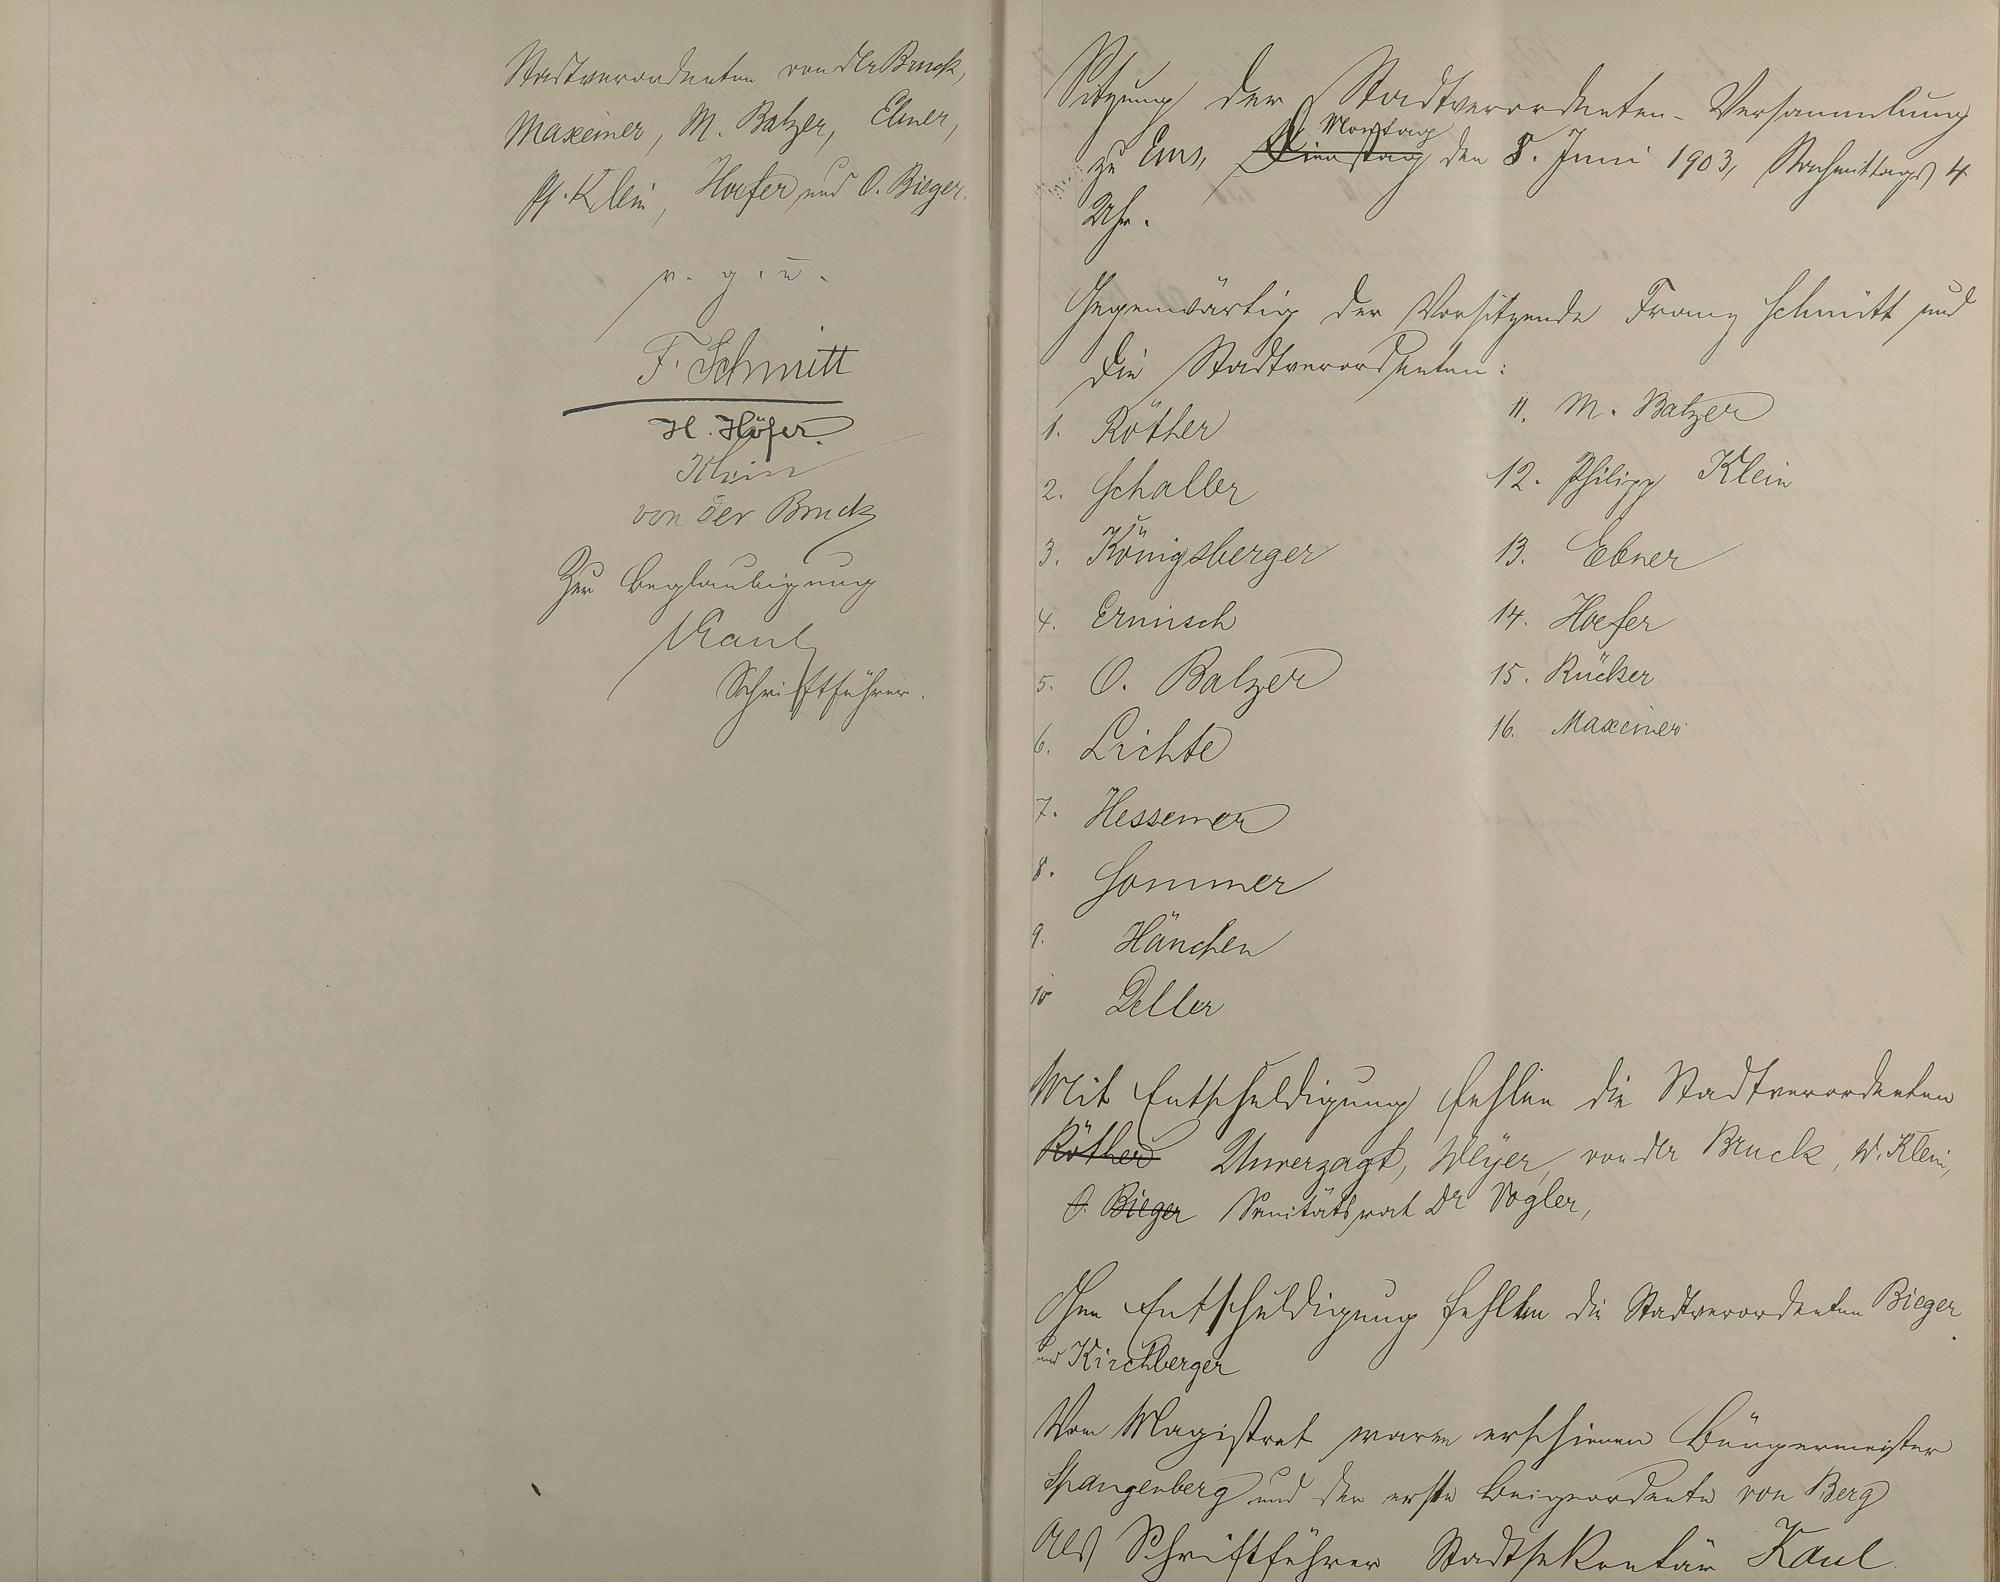 Stadtverordneten von der Bruck,
Maxeiner, M. Balzer, Ebner,
Ph. Klein, Hoefer und O. Bieger.
v. g. u.
F. Schmitt
H. Höfer.
Klein
von der Bruck
Zur Beglaubigung
Kaul
Schriftführer.
Sitzung der Stadtverordneten-Versammlung
zu Ems, Dienstag Montag den 8. Juni 1903, Nachmittags 4
Uhr.
Gegenwärtig der Vorsitzende Franz Schmitt und
die Stadtverordneten:
1. Röther
2. Schaller
3. Königsberger
4. Ermisch
5. O. Balzer
6. Lichte
7. Hessemer
8. Sommer
9. Hänchen
10 Deller
11. M. Balzer
12. Philipp Klein
13. Ebner
14. Hoefer
15. Rücker
16. Maxeiner
Mit Entschuldigung fehlen die Stadtverordneten
Röther Unverzagt, Weyer, von der Bruck, W. Klein,
O. Bieger Sanitätsrat Dr Vogler,
Ohne Entschuldigung fehlten die Stadtverordneten Bieger
und Kirchberger
Vom Magistrat waren erschienen Bürgermeister
Spangenberg und der erste Beigeordnete von Berg
Als Schriftführer Stadtsekretär Kaul